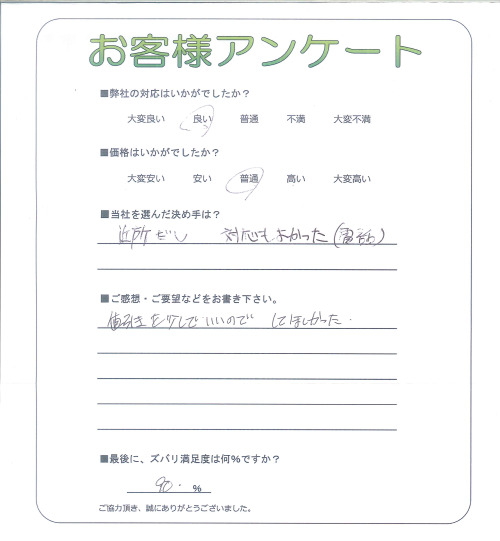 お客様アンケート
■弊社の対応はいかがでしたか？
大変良い 良い 普通 不満 大変不満
■価格はいかがでしたか？
大変安い 安い 普通 高い 大変高い
■当社を選んだ決め手は？
近所だし 対応もよかった(電話)
■ご感想・ご要望などをお書き下さい。
値引きを少しでいいので してほしかった.
■最後に、ズバリ満足度は何％ですか？
90. %
ご協力頂き、誠にありがとうございました。